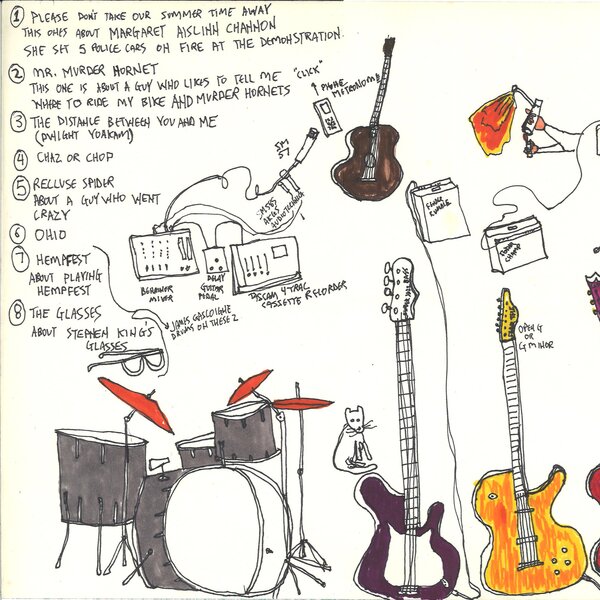 1 PLEASE DON'T TAKE OUR SUMMER TIME AWAY
THIS ONES ABOUT MARGARET AISLINN CHANNON
SHE SET 5 POLICE CARS ON FIRE AT THE DEMONSTRATION.
2 MR. MURDER HORNET
THIS ONE IS ABOUT A GUY WHO LIKES TO TELL ME
WHERE TO RIDE MY BIKE AND MURDER HORNETS
3 THE DISTANCE BETWEEN YOU AND ME
(DWIGHT YOAKAM)
4 CHAZ OR CHOP
5 RECLUSE SPIDER
ABOUT A GUY WHO WENT
CRAZY
6 OHIO
7 HEMPFEST
ABOUT PLAYING
HEMPFEST
8 THE GLASSES
ABOUT STEPHEN KING'S
GLASSES
JANIS GASCOIGNE
DRUMS ON THESE 2
"CLICK"
PHONE
METRONOME
SM
57
AUDIOTECHNICA
BEHRINGER
MIXER
DELAY
GUITAR
PEDAL
TASCAM 4 TRAC
CASSETTE RECORDER
OPEN G
OR
G MINOR